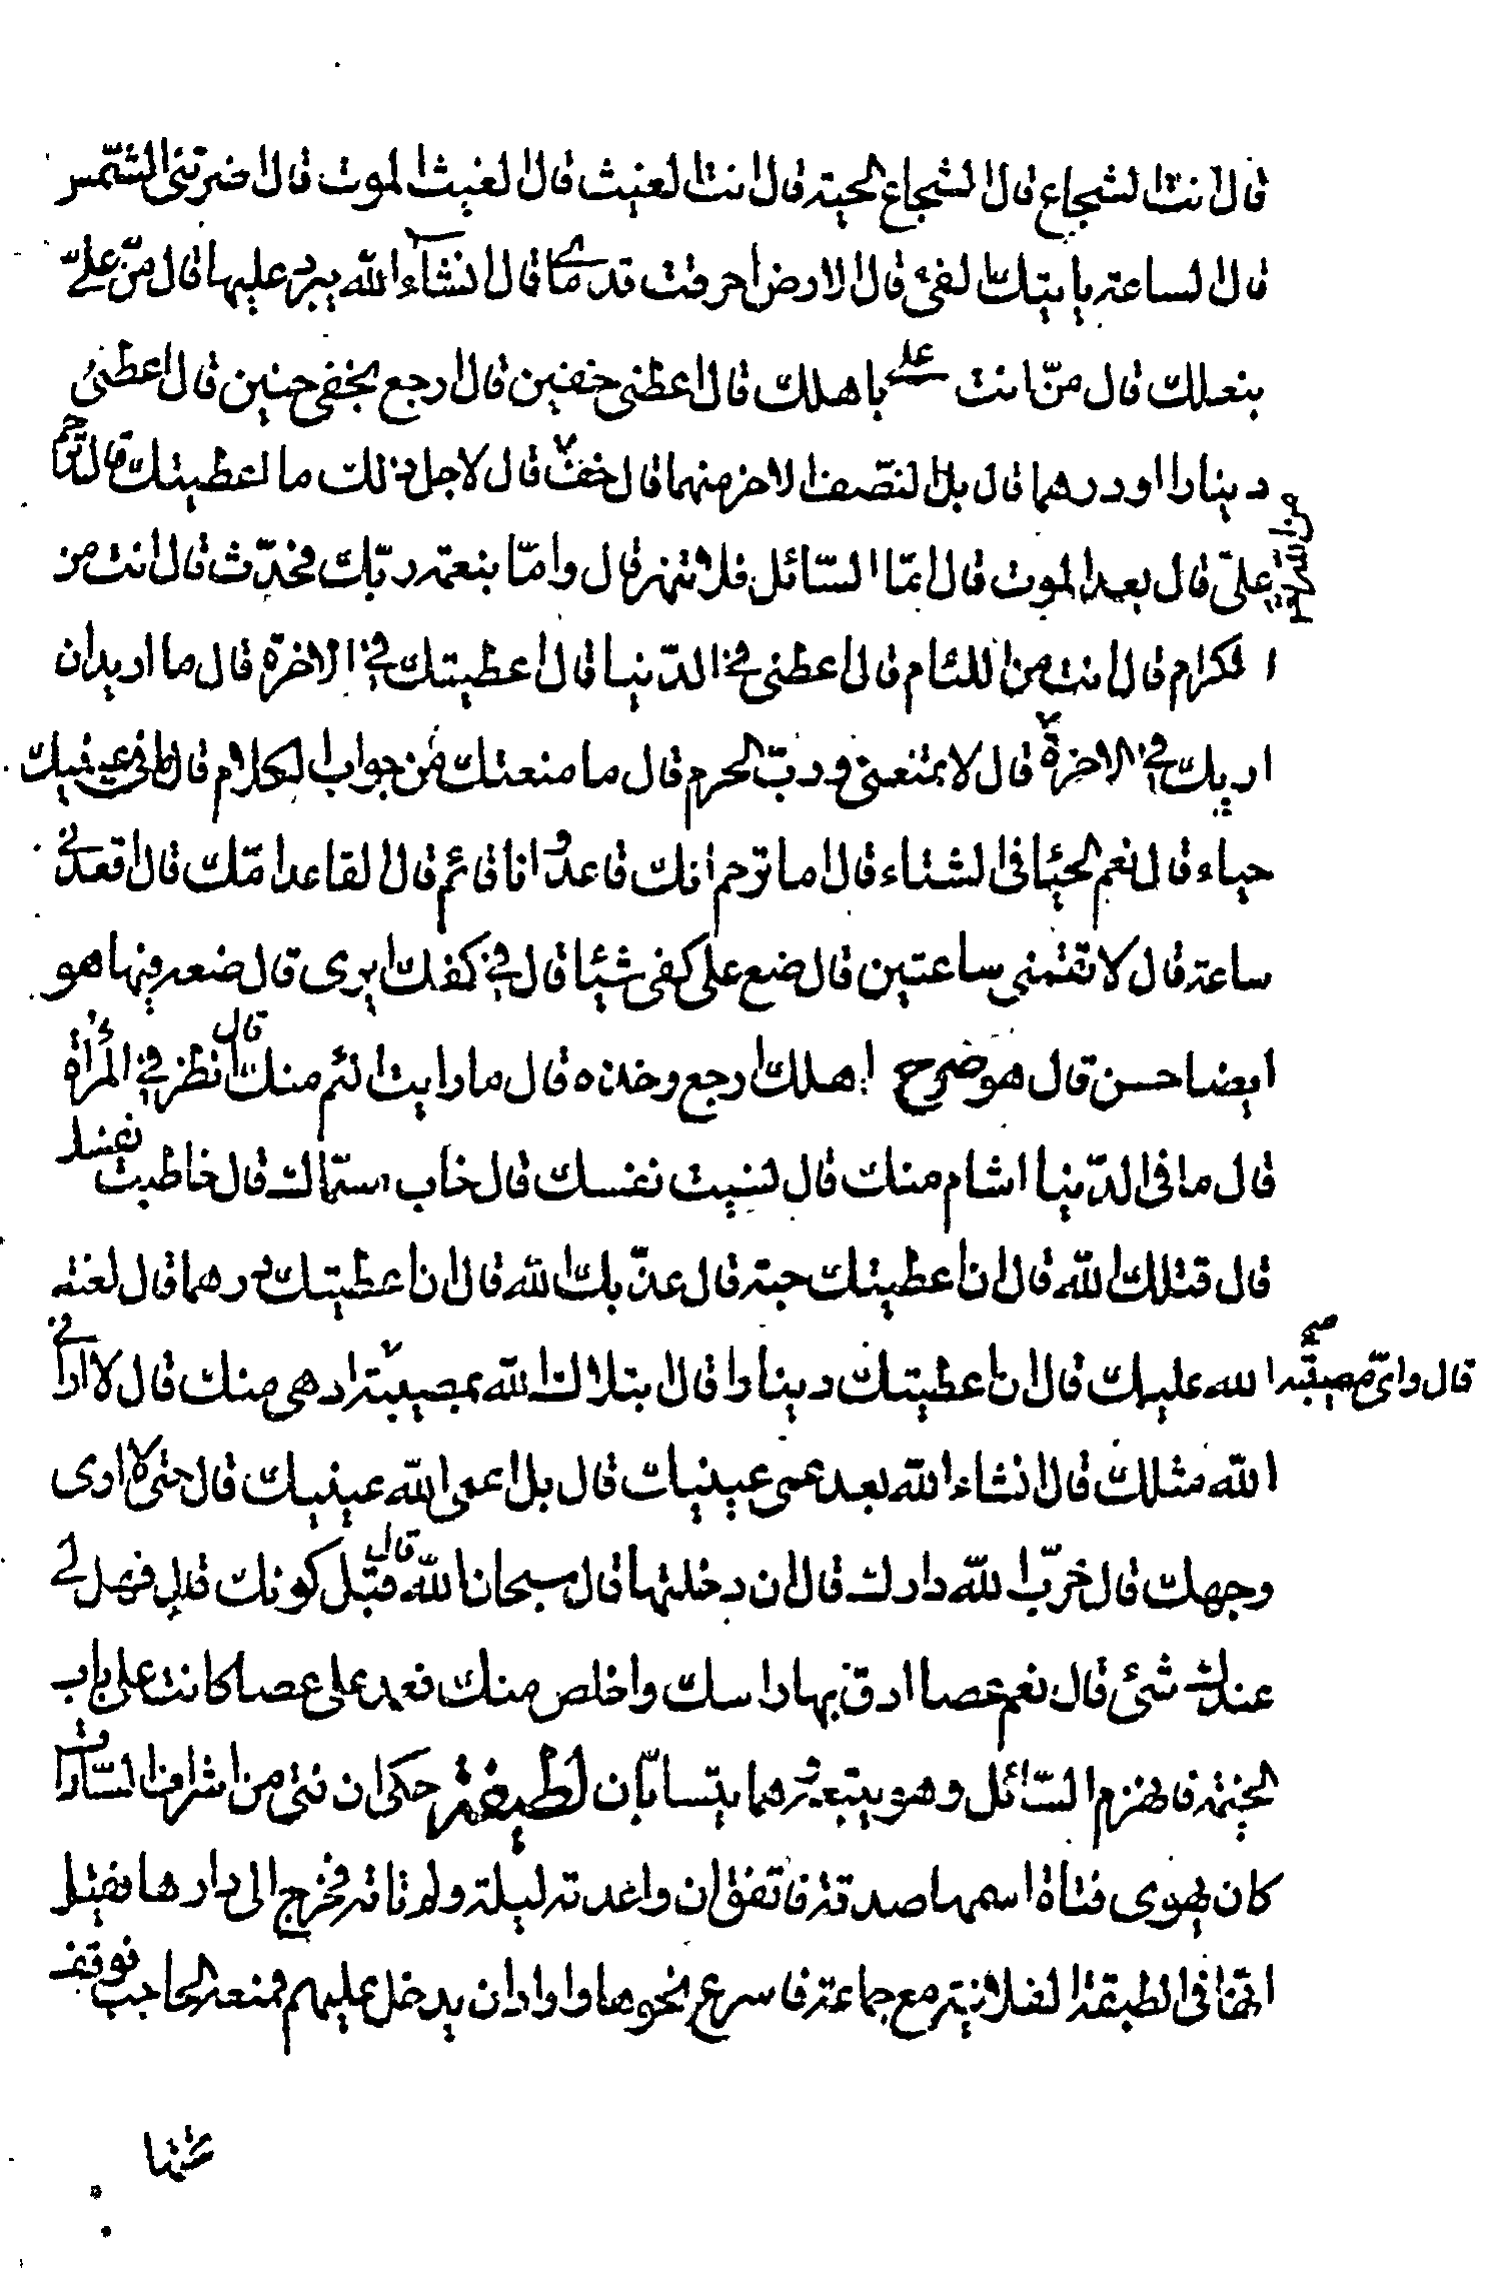 قال انت الشجاع قال الشجاع الحية قال انت الغيث قال الغيث الموت قال اضرتني الشمس
قال الساعة يأتيك الفئ قال الارض احرقت قدماي قال انشاء الله يبرد عليها قال منّ عليّ
بنعلك قال منّ انت عليّ باهلك قال اعطني خفين قال ارجع بخفي حنين قال اعطني
دينارا او درهما قال بل النصف الاخر منهما قال خفت قال لاجل ذلك ما اعطيتك قال ترحم
عليّ قال بعد الموت قال امّا السّائل فلا تنهر قال وامّا بنعمة ربّك فحدّث قال انت من
الكرام قال انت من اللئام قال اعطني في الدّنيا قال اعطيتك في الاخرة قال ما اريد ان
اريك في الاخرة قال لا تمنعني وربّ الحرم قال ما منعتك من جواب الكلام قال ما في عينيك
حياء قال نعم الحيا في الشتاء قال اما ترحم انك قاعد وانا قائم قال القاعد امّك قال اقعدني
ساعة قال لا تقتمني ساعتين قال ضع على كفي شيئا قال في كفك ايري قال ضعه فيها هو
ايضا حسن قال هو ضجيع اهلك ارجع وخذه قال ما رايت الئم منك قال انظر في المرأة
قال ما في الدّنيا اشام منك قال لنسيت نفسك قال خاب سماك قال خاطبت نفسك
قال قتلك الله قال ان اعطيتك حبة قال عذّبك الله قال ان اعطيتك درهما قال لعنة
الله عليك قال ان اعطيتك دينارا قال ابتلاك الله بمصيبة ادهى منك قال لا اراني
قال واىّ مصيبة صح
الله مثلك قال انشاء الله بعد عمى عينيك قال بل اعمى الله عينيك قال حتى لا ارى
وجهك قال خرّب الله دارك قال ان دخلتها قال سبحان الله قال قبل كونك قال فهل لي
عندك شئ قال نعم عصا ادق بها راسك واخلص منك فعمد على عصا كانت على باب
الخيمة فانهزم السّائل وهو يتبعه وهما يتسابّان لطيفة حكى ان فتى من اشراف السّادات
كان يهوى فتاة اسمها صدقة فاتفق ان واعدته ليلة ولم تاته فخرج الى دارها فقيل
انّها في الطبقة الفلانية مع جماعة فاسرع نحوها واراد ان يدخل عليهم فمنعه الحاجب فوقف